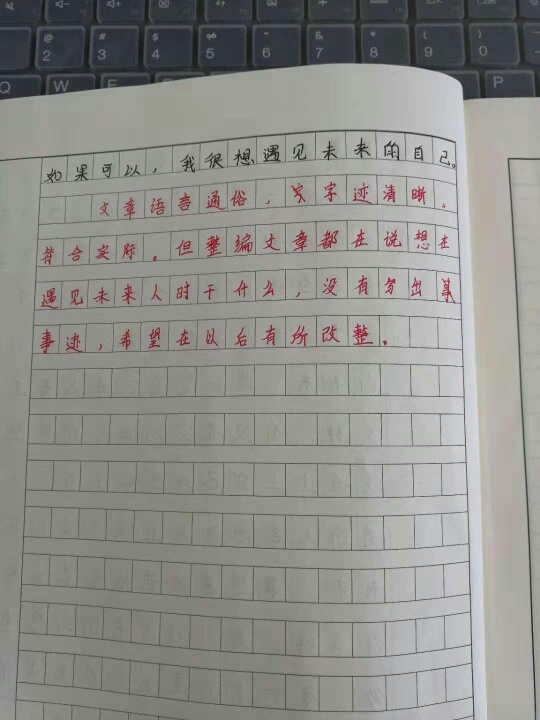 @ # ¥ % & *
2 3 4 5 6 7 8
Q W E
如果可以，我很想遇见未来的自己。
文章语言通俗，字迹清晰，
符合实际。但整编文章都在说想在
遇见未来人时干什么，没有写出其
事迹，希望在以后有所改整。